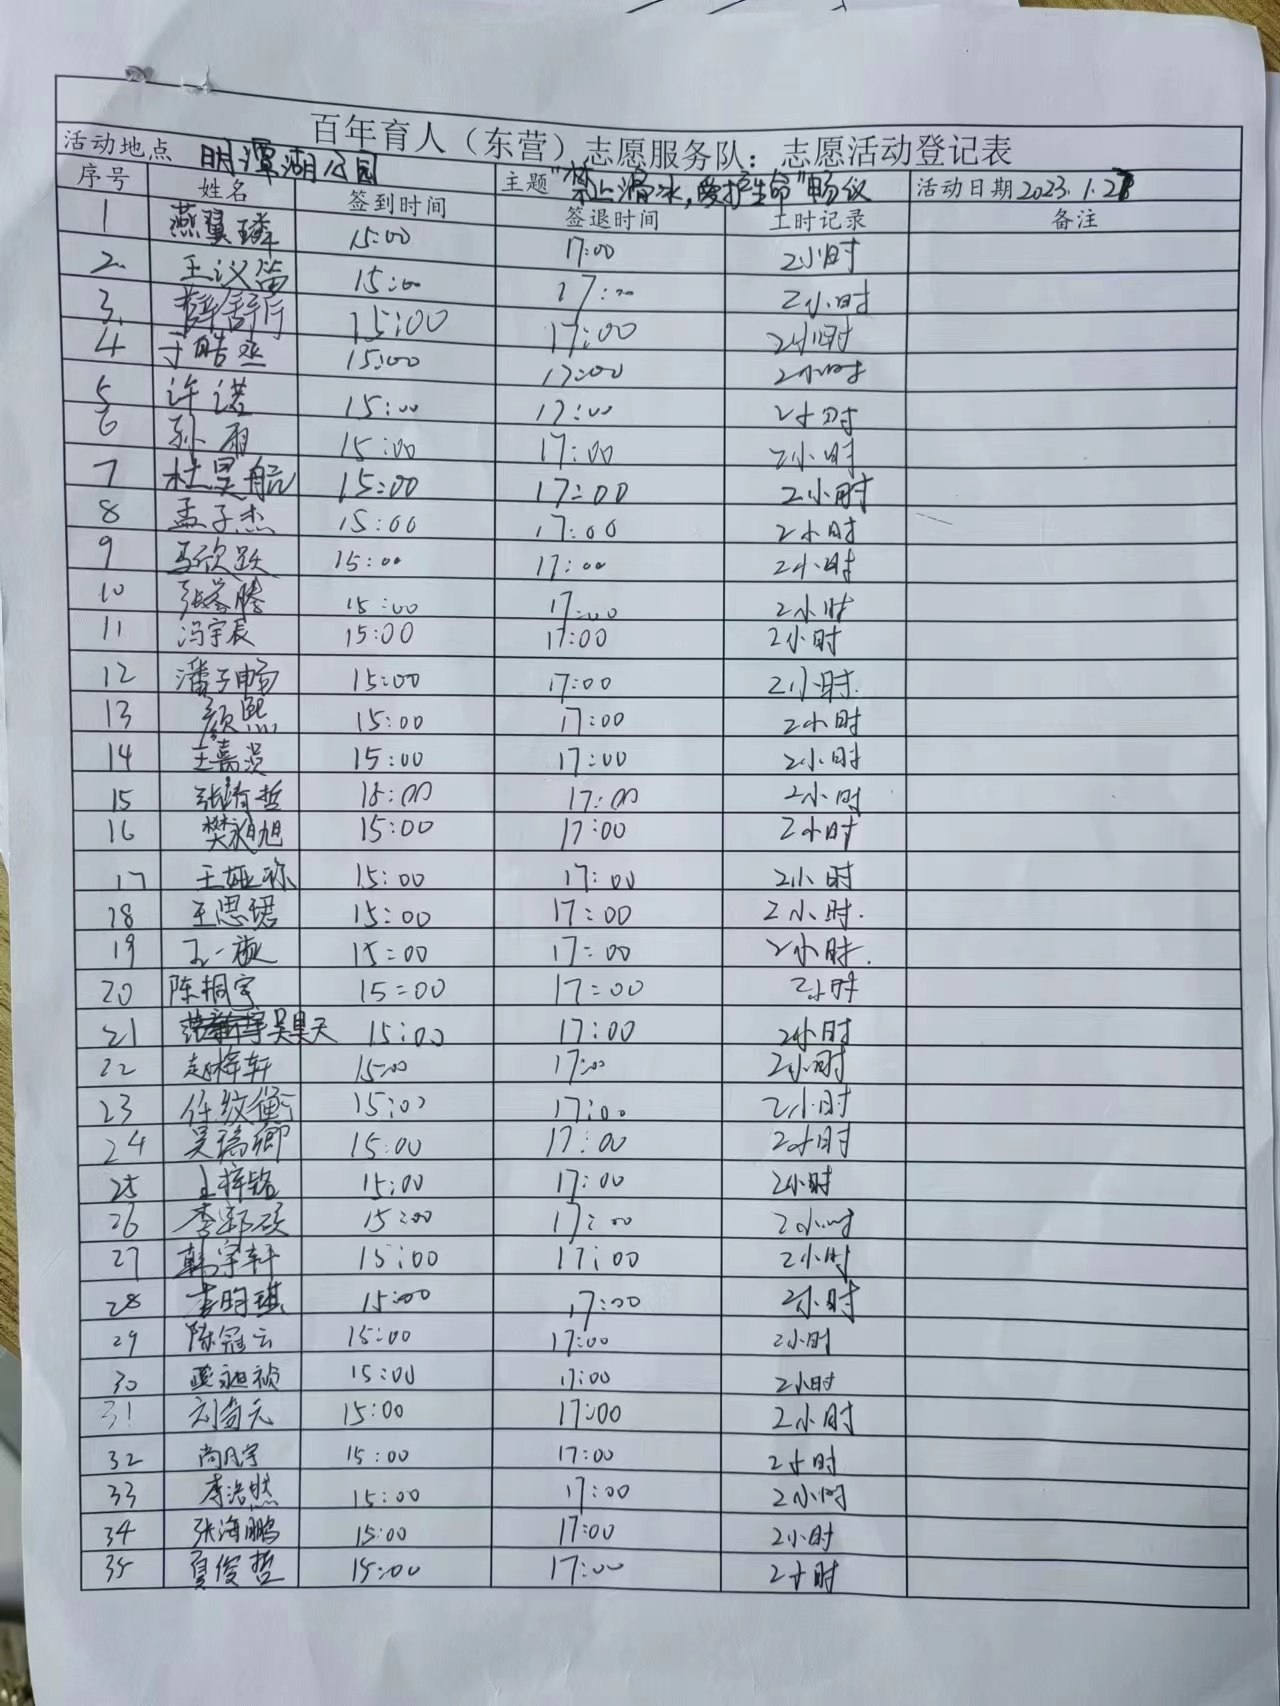 百年育人（东营）志愿服务队：志愿活动登记表
活动地点 明潭湖公园 主题"禁止滑冰,爱护生命"倡议 活动日期 2023.1.2
序号 姓名 签到时间 签退时间 工时记录 备注
1 燕翼璘 15:00 17:00 2小时
2. 王议笛 15:00 17:00 2小时
3. 15:00 17:00 2小时
4 于皓丞 15:00 17:00 2小时
5 许诺 15:00 17:00 2小时
6 孙雨 15:00 17:00 2小时
7 杜昊航 15:00 17:00 2小时
8 孟子杰 15:00 17:00 2小时
9 马欣跃 15:00 17:00 2小时
10 张 腾 15:00 17:00 2小时
11 冯宇辰 15:00 17:00 2小时
12 潘子畅 15:00 17:00 2小时.
13 颜熙 15:00 17:00 2小时
14 王嘉 15:00 17:00 2小时
15 张 哲 15:00 17:00 2小时
16 樊昶旭 15:00 17:00 2小时
17 王 15:00 17:00 2小时
18 王思珺 15:00 17:00 2小时.
19 王一 15:00 17:00 2小时.
20 陈桐宇 15=00 17=00 2小时
21 吴昊天 15:00 17:00 2小时
22 赵梓轩 15:00 17:00 2小时
23 任纹衡 15:00 17:00 2小时
24 吴瑞卿 15:00 17:00 2小时
25 王梓铭 15:00 17:00 2小时
26 李 硕 15:00 17:00 2小时
27 韩宇轩 15:00 17:00 2小时
28 李昀琪 15:00 17:00 2小时
29 陈冠云 15:00 17:00 2小时
30 15:00 17:00 2小时
31 刘尚元 15:00 17:00 2小时
32 尚凡宇 15:00 17:00 2小时
33 李浩然 15:00 17:00 2小时
34 张海鹏 15:00 17:00 2小时
35 夏俊哲 15:00 17:00 2小时